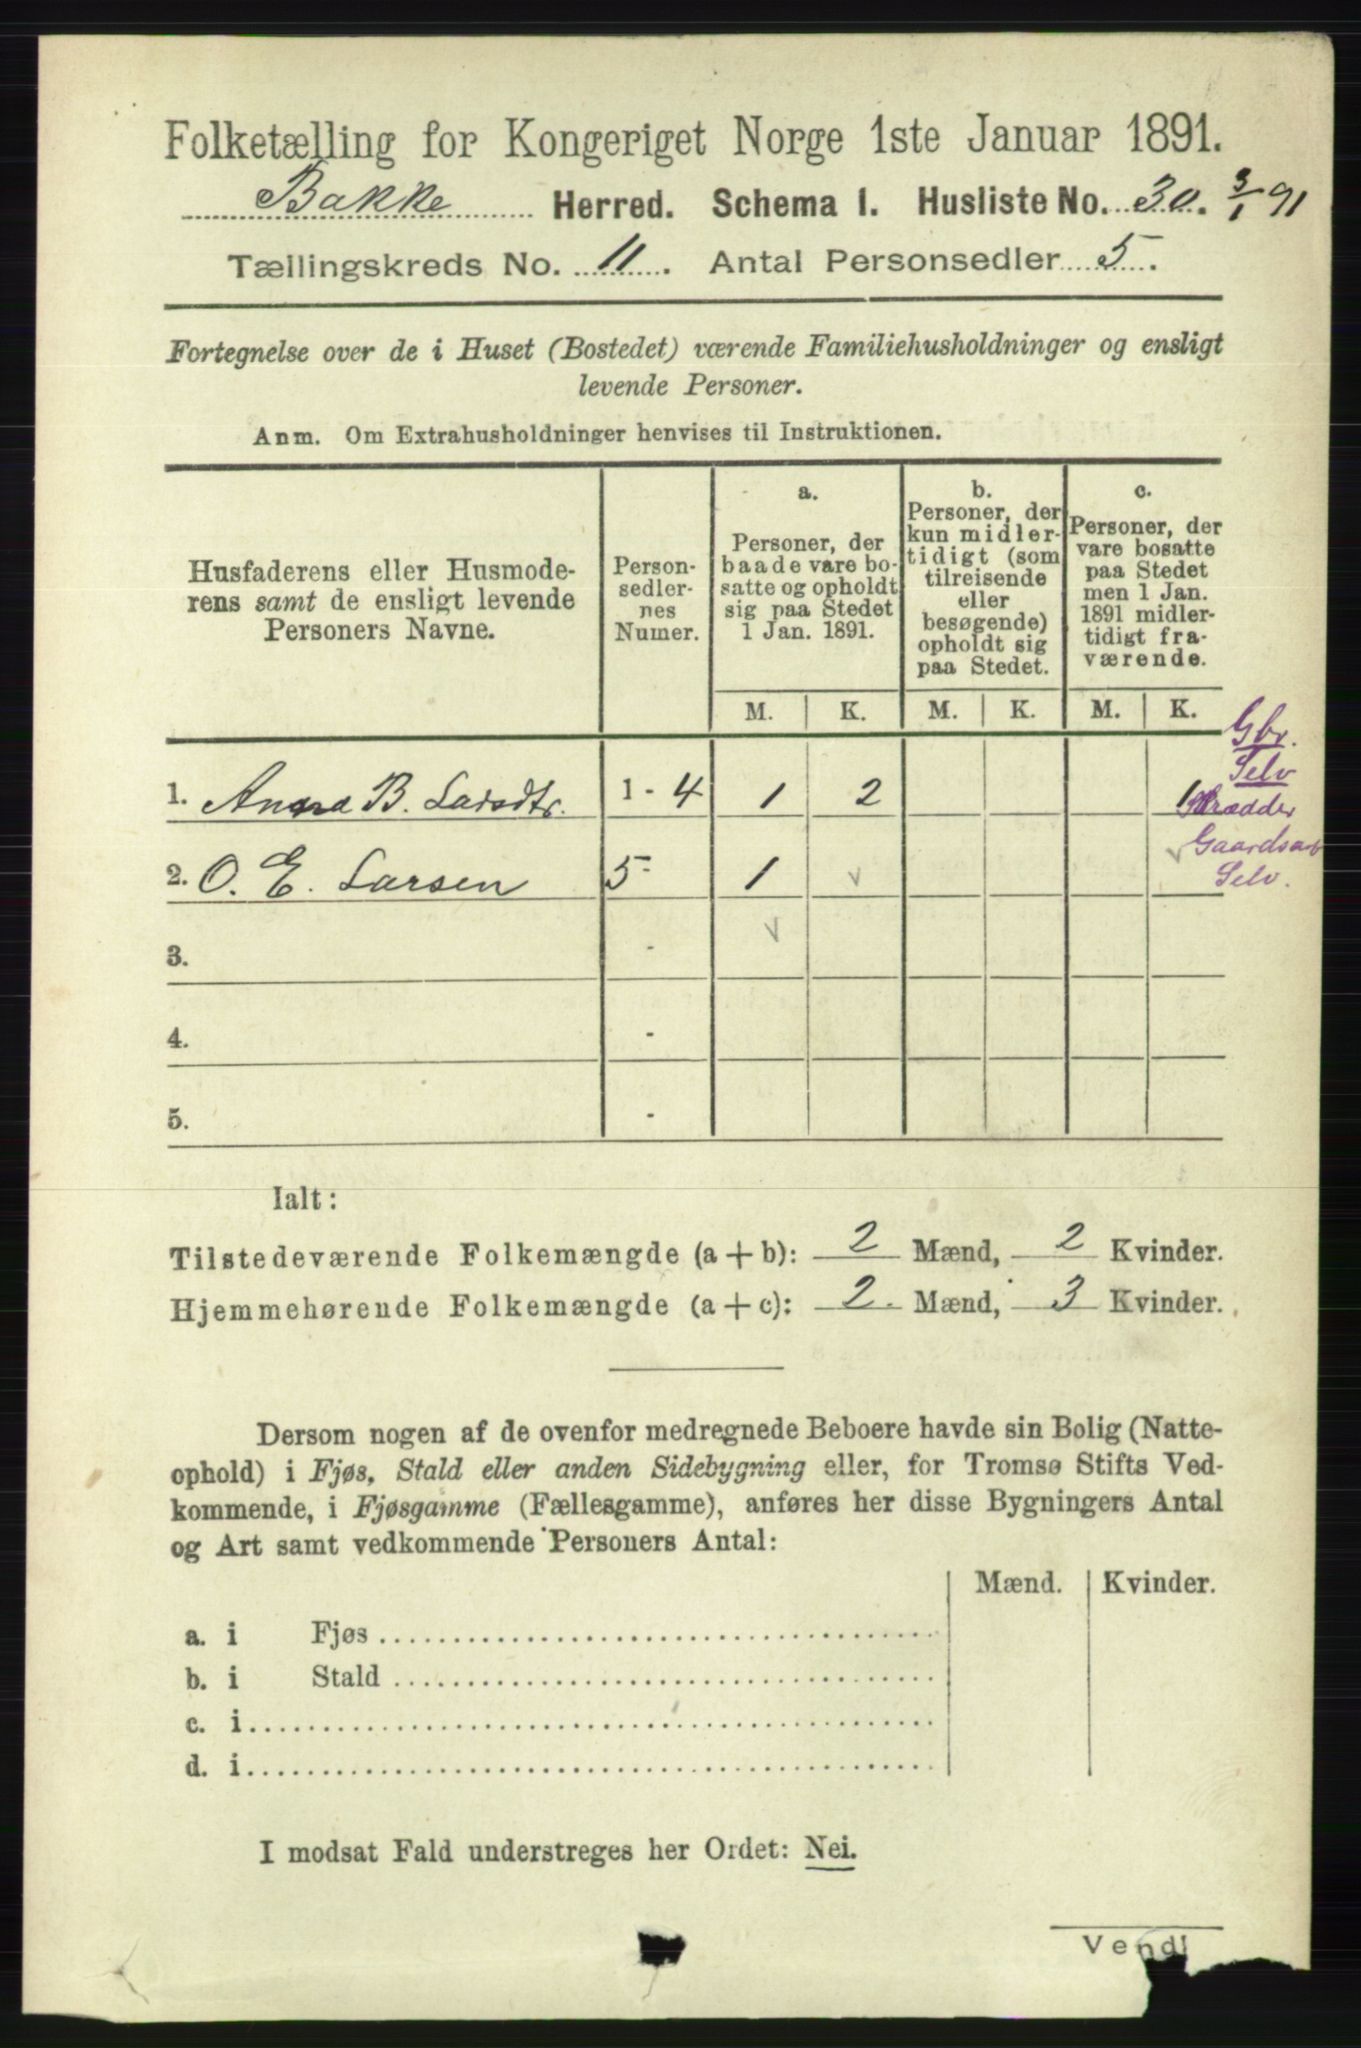 Folketælling for Kongeriget Norge 1ste Januar 1891.
Bakke Herred. Schema 1. Husliste No. 30. 3/1 91
Tællingskreds No. 11. Antal Personsedler 5.
Fortegnelse over de i Huset (Bostedet) værende Familiehusholdninger og ensligt
levende Personer.
Anm. Om Extrahusholdninger henvises til Instruktionen.
Husfaderens eller Husmode-
rens samt de ensligt levende
Personers Navne.
Person-
sedler-
nes
Numer.
a.
Personer, der
baade vare bo-
satte og opholdt
sig paa Stedet
1 Jan. 1891.
b.
Personer, der
kun midler-
tidigt (som
tilreisende
eller
besøgende)
opholdt sig
paa Stedet.
c.
Personer, der
vare bosatte
paa Stedet
men 1 Jan.
1891 midler-
tidigt fra-
værende.
M. K. M. K. M. K.
Gbr.
Selv
1. Anna B. Larsdtr. 1 - 4 1 2 1
Gaardsarb
2. O. E. Larsen 5 - 1 Selv.
3. -
4. -
5. -
Ialt:
Tilstedeværende Folkemængde (a + b): 2 Mænd, 2 Kvinder.
Hjemmehørende Folkemængde (a + c): 2. Mænd, 3 Kvinder.
Dersom nogen af de ovenfor medregnede Beboere havde sin Bolig (Natte-
ophold) i Fjøs, Stald eller anden Sidebygning eller, for Tromsø Stifts Ved-
kommende, i Fjøsgamme (Fællesgamme), anføres her disse Bygningers Antal
og Art samt vedkommende Personers Antal:
Mænd. Kvinder.
a. i Fjøs
b. i Stald
c. i
d. i
I modsat Fald understreges her Ordet: Nei.
Vend!